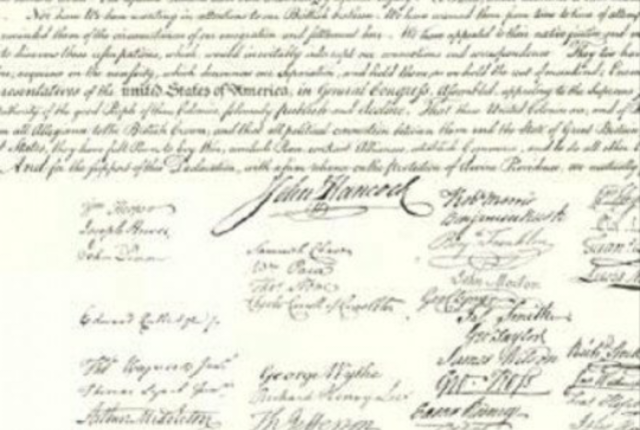 Nor have We been wanting in attentions to our Brittish brethren. We have warned them from time to time of attem
reminded them of the circumstances of our emigration and settlement here. We have appealed to their native justice and
to disavow these usurpations, which would inevitably interrupt our connections and correspondence. They too ha
acquiesce in the necessity, which denounces our Separation, and hold them, as we hold the rest of mankind, Enem
resentatives of the united States of America, in General Congress, Assembled, appealing to the Supreme
uthority of the good People of these Colonies, solemnly publish and declare, That these United Colonies are, and of
m all Allegiance to the British Crown, and that all political connection between them and the State of Great Britain
t States, they have full Power to levy War, conclude Peace, contract Alliances, establish Commerce, and to do all other
And for the support of this Declaration, with a firm reliance on the Protection of divine Providence, we mutually
John Hancock
Wm Hooper
Joseph Hewes
John Penn
Edward Rutledge
Thos Heyward Junr
Thomas Lynch Junr
Arthur Middleton
Samuel Chase
Wm Paca
Thos Stone
Charles Carroll of Carrollton
George Wythe
Richard Henry Lee
Th Jefferson
Robt Morris
Benjamin Rush
Benj Franklin
John Morton
Geo Clymer
Jas Smith
Geo Taylor
James Wilson
Geo Ross
Caesar Rodney